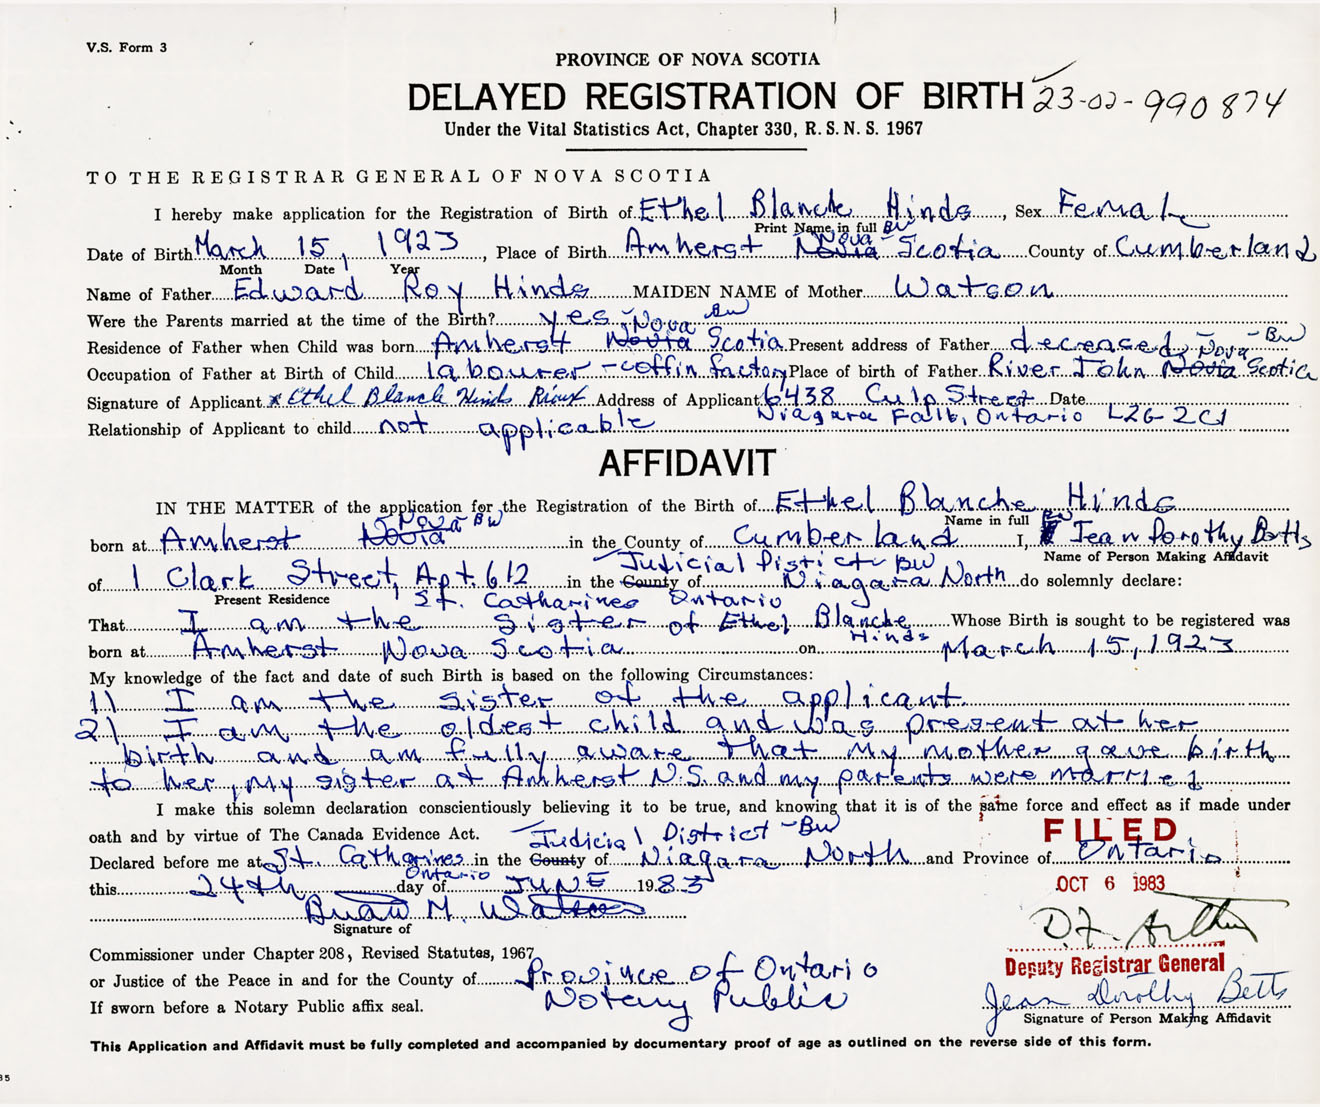 V.S. Form 3
PROVINCE OF NOVA SCOTIA
DELAYED REGISTRATION OF BIRTH 23-02-990874
Under the Vital Statistics Act, Chapter 330, R.S.N.S. 1967
TO THE REGISTRAR GENERAL OF NOVA SCOTIA
I hereby make application for the Registration of Birth of Ethel Blanche Hinds, Sex Female
Print Name in full BW
Nova
Date of Birth March 15, 1923, Place of Birth Amherst Novia Scotia County of Cumberland
Month Date Year
Name of Father Edward Roy Hinds MAIDEN NAME of Mother Watson
Were the Parents married at the time of the Birth? yes
Nova BW
Residence of Father when Child was born Amherst Novia Scotia Present address of Father decreased
Nova - BW
Occupation of Father at Birth of Child labourer - coffin factory Place of birth of Father River John Novia Scotia
Signature of Applicant x Ethel Blanche Hinds Rioux Address of Applicant 6438 Culp Street Date
Niagara Falls, Ontario L2G-2C1
Relationship of Applicant to child not applicable
AFFIDAVIT
IN THE MATTER of the application for the Registration of the Birth of Ethel Blanche Hinds
Nova - BW Name in full BW
born at Amherst Novia in the County of Cumberland I, Jean Dorothy Betts
Name of Person Making Affidavit
Judicial District - BW
of 1 Clark Street, Apt. 612 in the County of Niagara North do solemnly declare:
Present Residence St. Catharines Ontario
That I am the sister of Ethel Blanche Whose Birth is sought to be registered was
Hinds
born at Amherst Nova Scotia on March 15, 1923
My knowledge of the fact and date of such Birth is based on the following Circumstances:
1) I am the sister of the applicant.
2) I am the oldest child and was present at her
birth and am fully aware that my mother gave birth
to her, my sister at Amherst N.S. and my parents were married
I make this solemn declaration conscientiously believing it to be true, and knowing that it is of the same force and effect as if made under
oath and by virtue of The Canada Evidence Act.
Judicial District - BW
FILED
Declared before me at St. Catharines in the County of Niagara North and Province of Ontario
Ontario
this 24th day of JUNE 1983
OCT 6 1983
Brian M. Watson
Signature of
D.F. Arthur
Commissioner under Chapter 208, Revised Statutes, 1967
Deputy Registrar General
or Justice of the Peace in and for the County of Province of Ontario
Notary Public
Jean Dorothy Betts
If sworn before a Notary Public affix seal.
Signature of Person Making Affidavit
This Application and Affidavit must be fully completed and accompanied by documentary proof of age as outlined on the reverse side of this form.